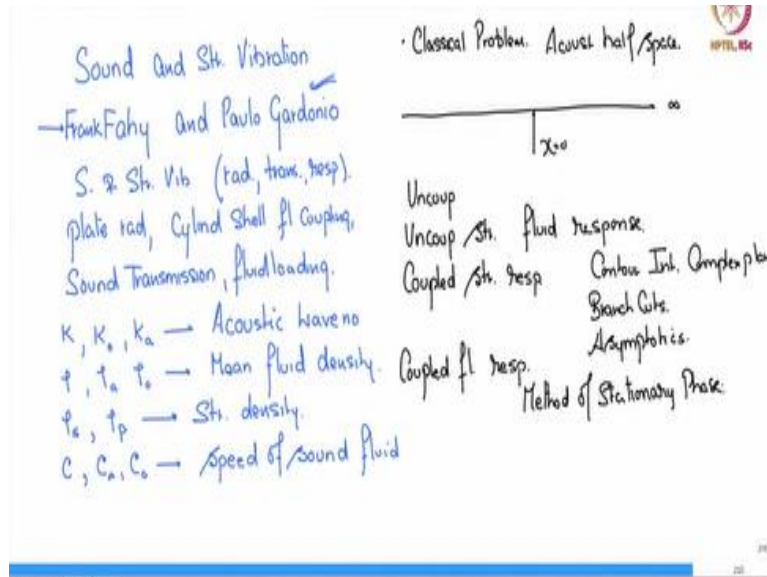 Sound and Str. Vibration
→ Frank Fahy and Paulo Gardonio
S. & Str. Vib (rad, trans., resp).
plate rad, Cylind Shell fl Coupling,
Sound Transmission, fluid loading.
K, K₀, Kₐ → Acoustic wave no
ρ, ρₐ ρ₀ → Mean fluid density.
ρₛ, ρₚ → Str. density.
C, Cₐ, C₀ → speed of sound fluid
· Classical Problem. Acoust half space.
∞
x=0
Uncoup
Uncoup str. fluid response.
Coupled str. resp
Contour Int. Complex pla
Branch Cuts.
Asymptotics.
Coupled fl resp.
Method of Stationary Phase.
NPTEL, IISc